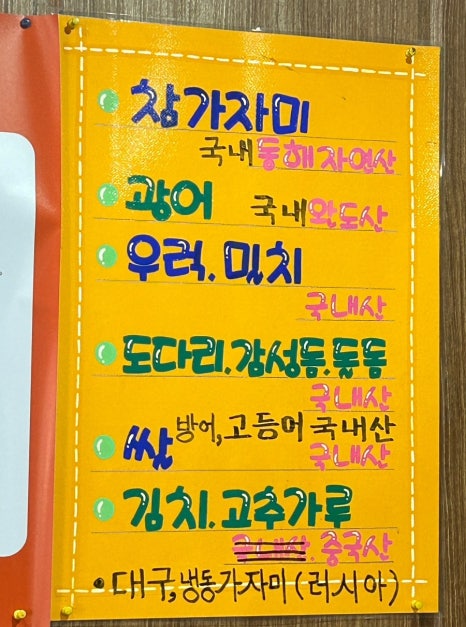 참가자미
국내 동해 자연산
광어 국내 완도산
우럭. 밀치
국내산
도다리.감성돔.돌돔
국내산
방어, 고등어 국내산
쌀 국내산
김치.고추가루
국내산. 중국산
• 대구, 냉동가자미 (러시아)